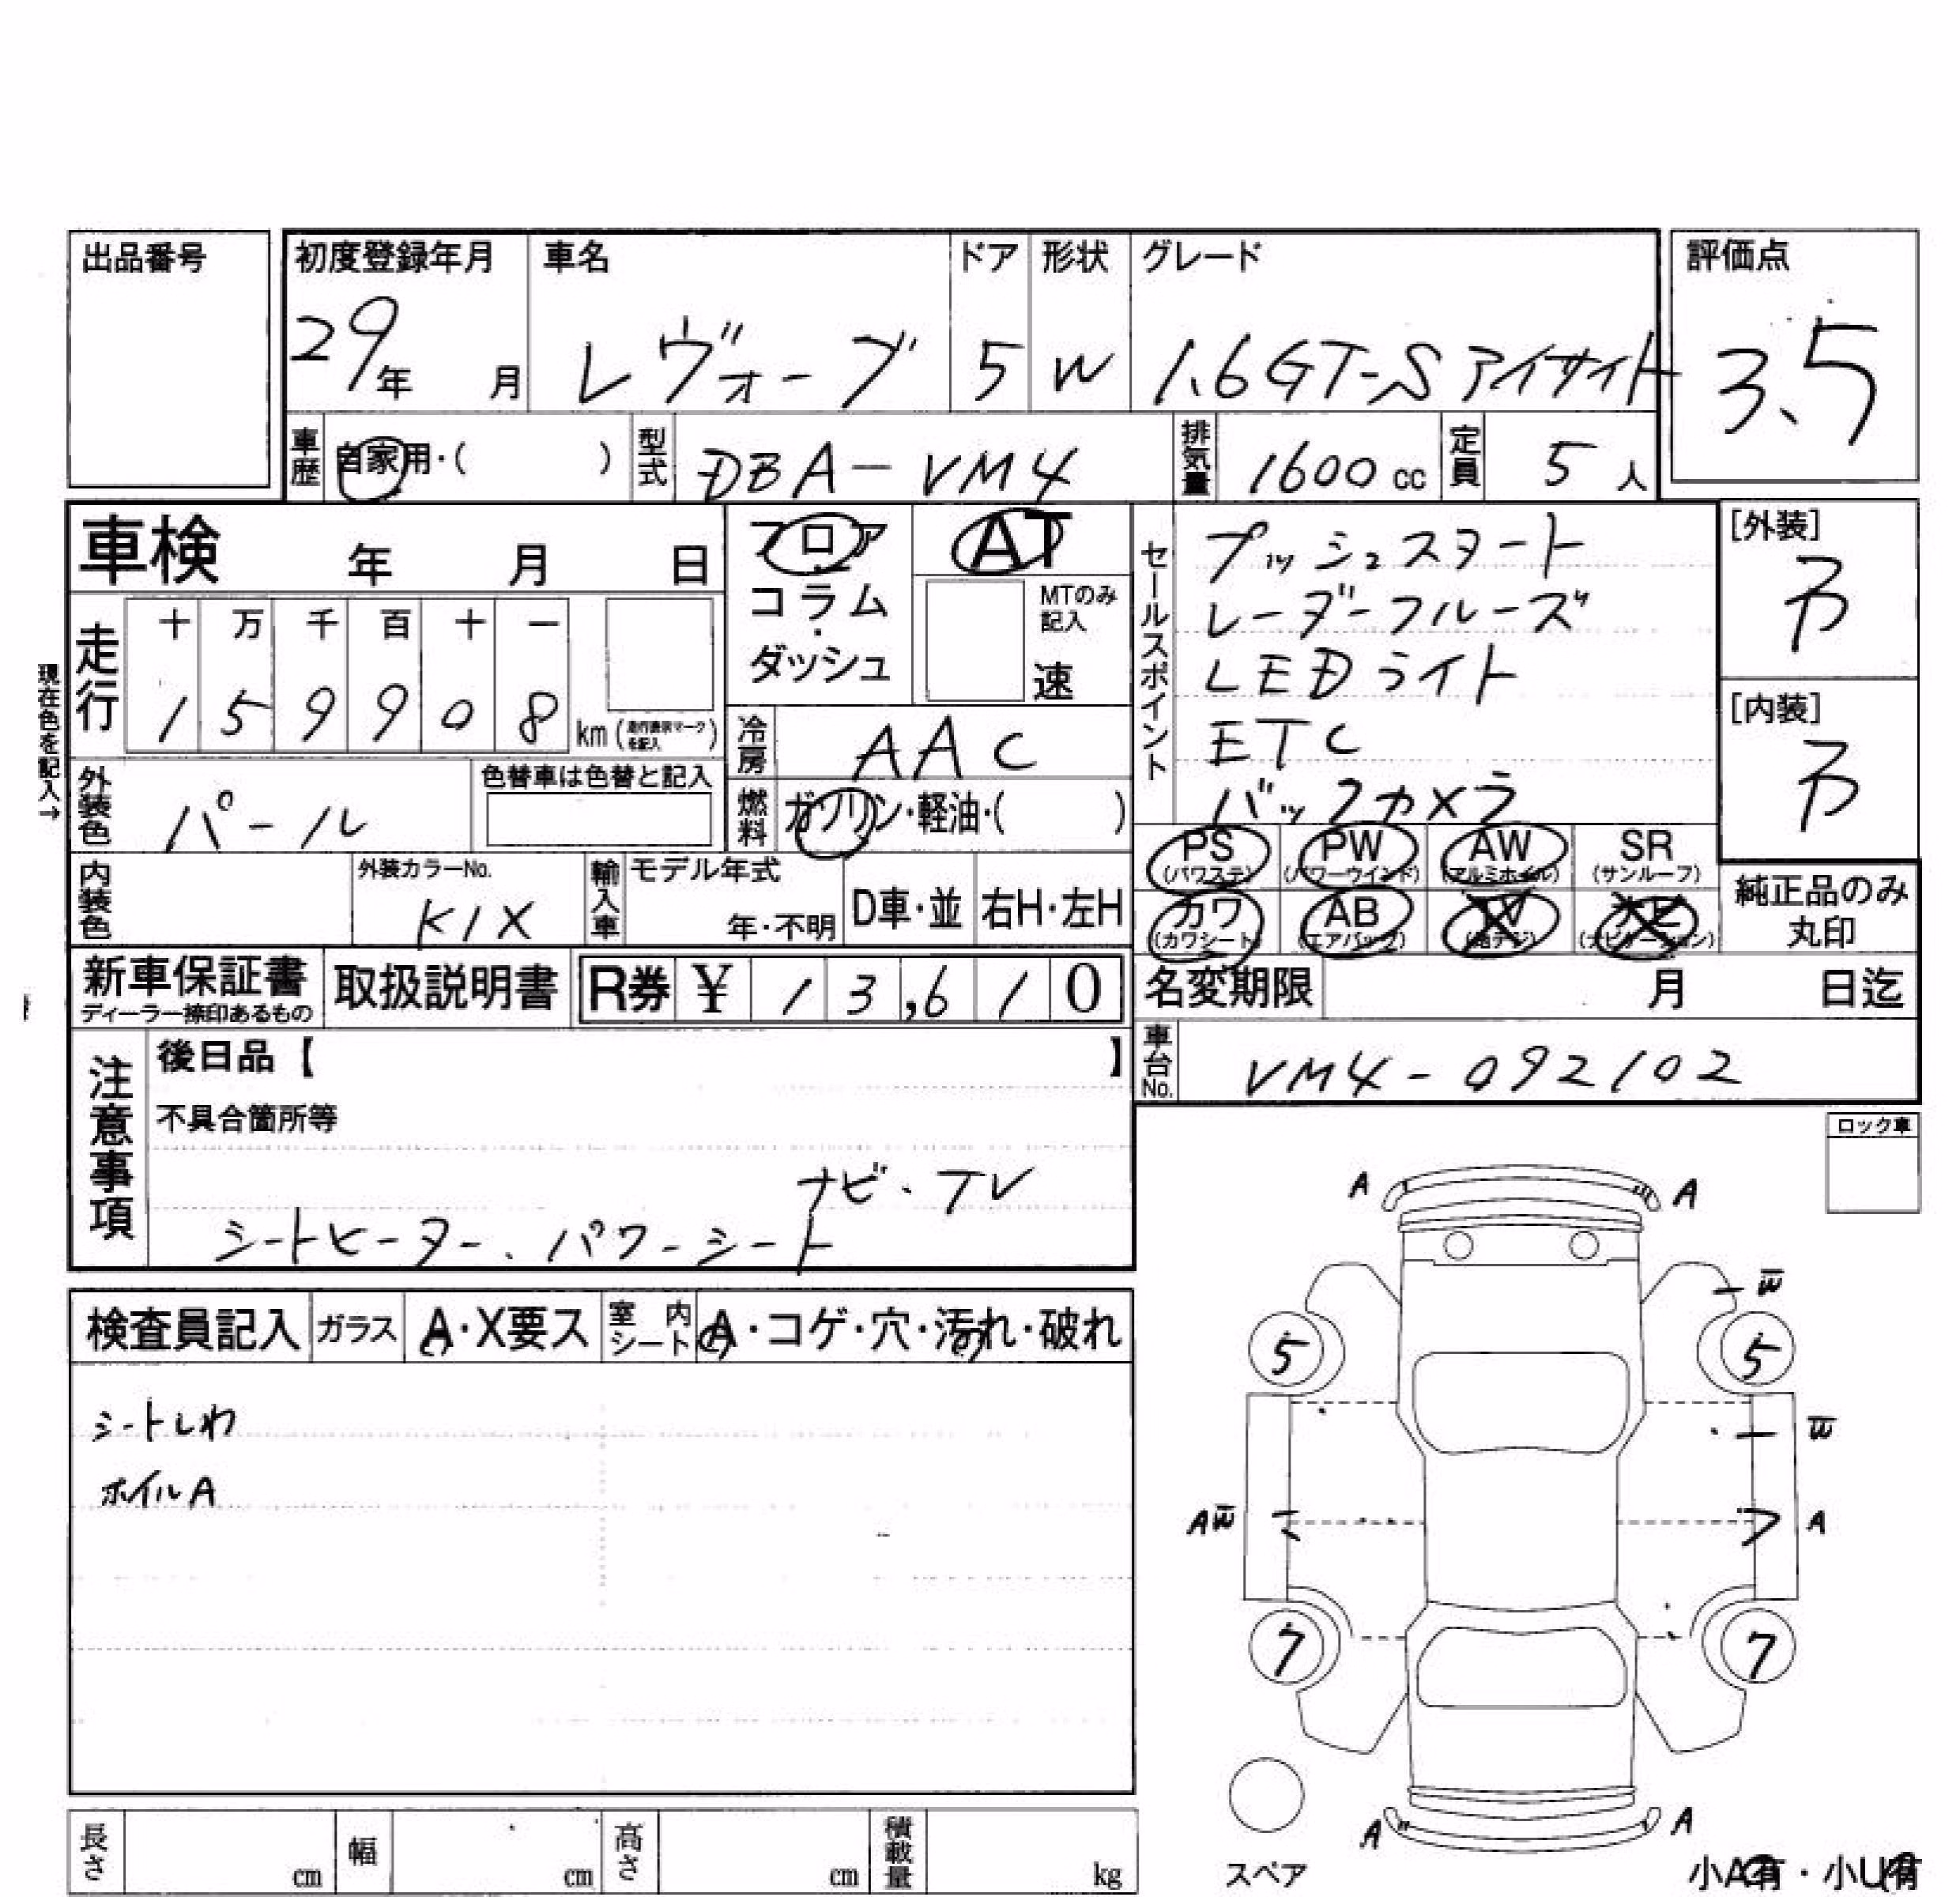 出品番号
初度登録年月 車名 ドア 形状 グレード 評価点
29年 月 レヴォーグ 5 W 1.6GT-Sアイサイト 3.5
車歴 自家用・( ) 型式 DBA-VM4 排気量 1600cc 定員 5人
車検 年 月 日
フロア・コラム・ダッシュ
AT
MTのみ記入
速
セールスポイント
プッシュスタート
レーダークルーズ
LEDライト
ETC
バックカメラ
[外装]
[内装]
現在色を記入→
走行 十 万 千 百 十 一
1 5 9 9 0 8 km(走行表示マークを記入)
冷房 AAC
外装色 パール 色替車は色替と記入
燃料 ガソリン・軽油・( )
PS (パワステ) PW (パワーウインド) AW (アルミホイル) SR (サンルーフ)
カワ (カワシート) AB (エアバッグ) TV (地デジ) ナビ (ナビゲーション)
純正品のみ丸印
内装色 外装カラーNo. K1X 輸入車 モデル年式 年・不明 D車・並 右H・左H
新車保証書 ディーラー捺印あるもの 取扱説明書 R券 ¥ 13,610
名変期限 月 日迄
車台No. VM4-092102
注意事項
後日品【 】
不具合箇所等
ナビ・TV
シートヒーター、パワーシート
ロック車
検査員記入 ガラス A・X要ス 室内シート A・コゲ・穴・汚れ・破れ
シートしわ
ホイルA
A A
W
5 5
W
AW A
7 7
A A
スペア
小A有・小U有
長さ cm 幅 cm 高さ cm 積載量 kg